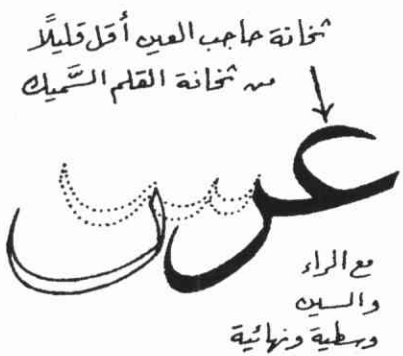 ثخانة حاجب العين أقل قليلًا
من ثخانة القلم السَّميك
عر
س
مع الراء
والسين
وسطية ونهائية